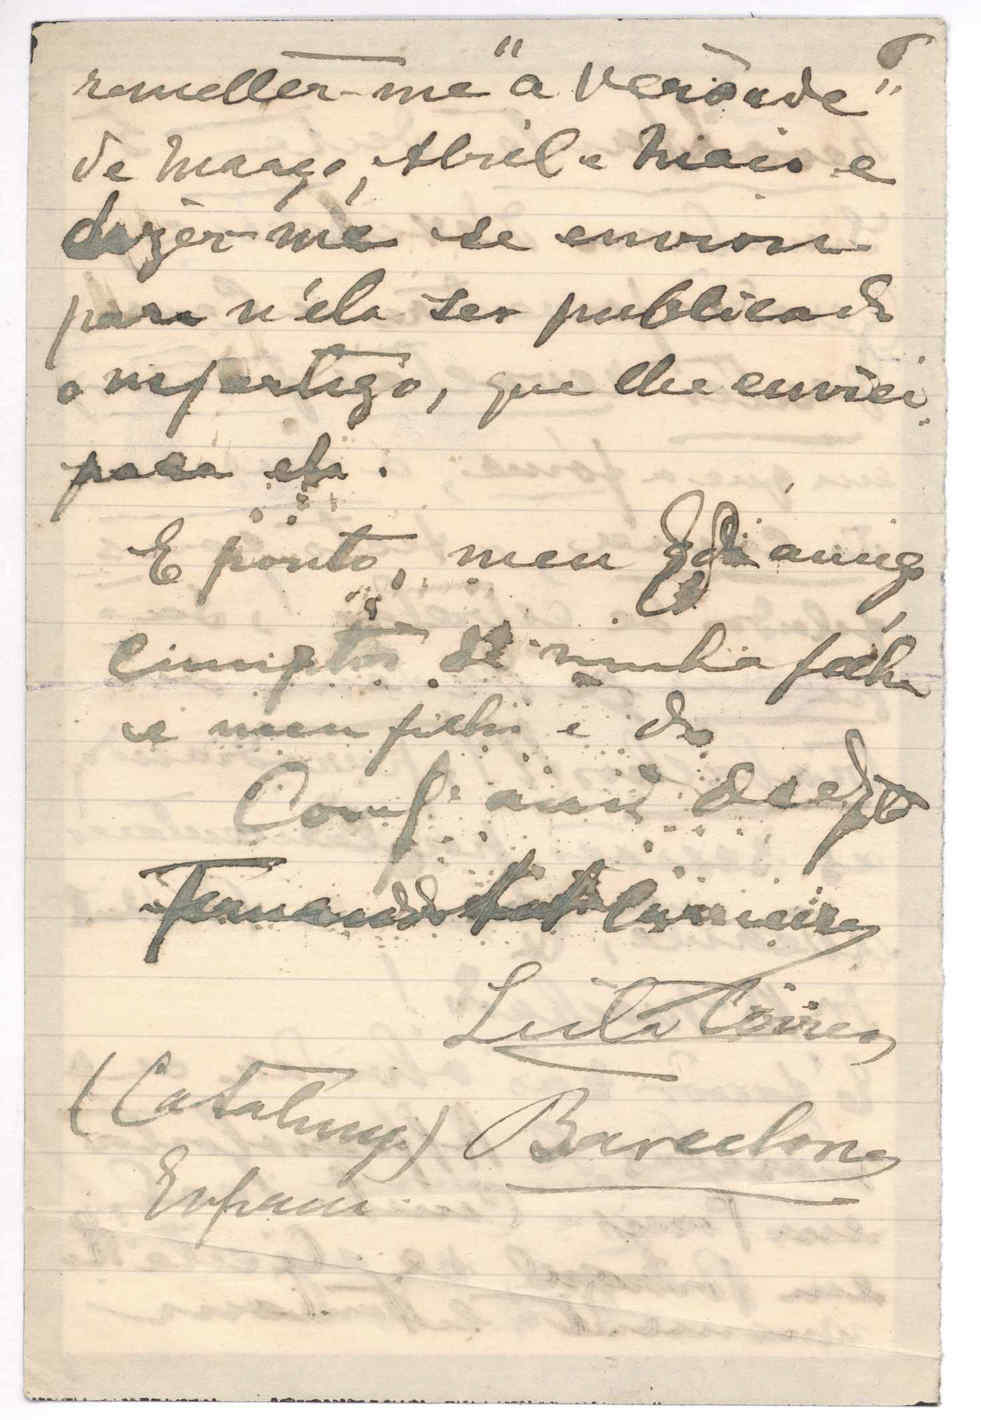 6
remetter-me "a Verdade"
de Março, Abril e Maio e
dizer-me se enviou
para n'ela ser publicado
o meu artigo, que lhe enviei
para ela.
E ponto, meu amigo
cumptos de minha filha
e meu filho e do
Conf amº
Fernando
(Catalunya) Barcelona
Espanha